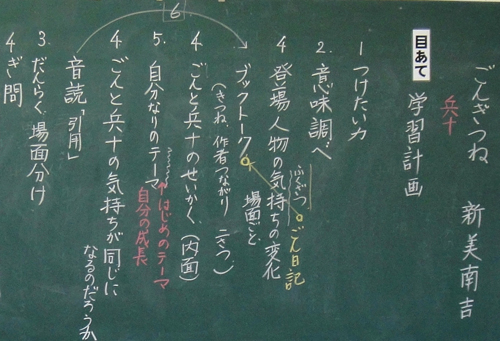 ごんぎつね 新美南吉
兵十
目あて 学習計画
1 つけたい力
2. 意味調べ
4 登場人物の気持ちの変化
場面ごと
ふくざつ
ごん日記
ブックトーク
(きつね、作者つながり 二さつ)
4. ごんと兵十のせいかく、(内面)
5. 自分なりのテーマ
はじめのテーマ
自分の成長
4. ごんと兵十の気持ちが同じに
なるのだろうか
音読「引用」
3. だんらく、場面分け
4 ぎ問
6